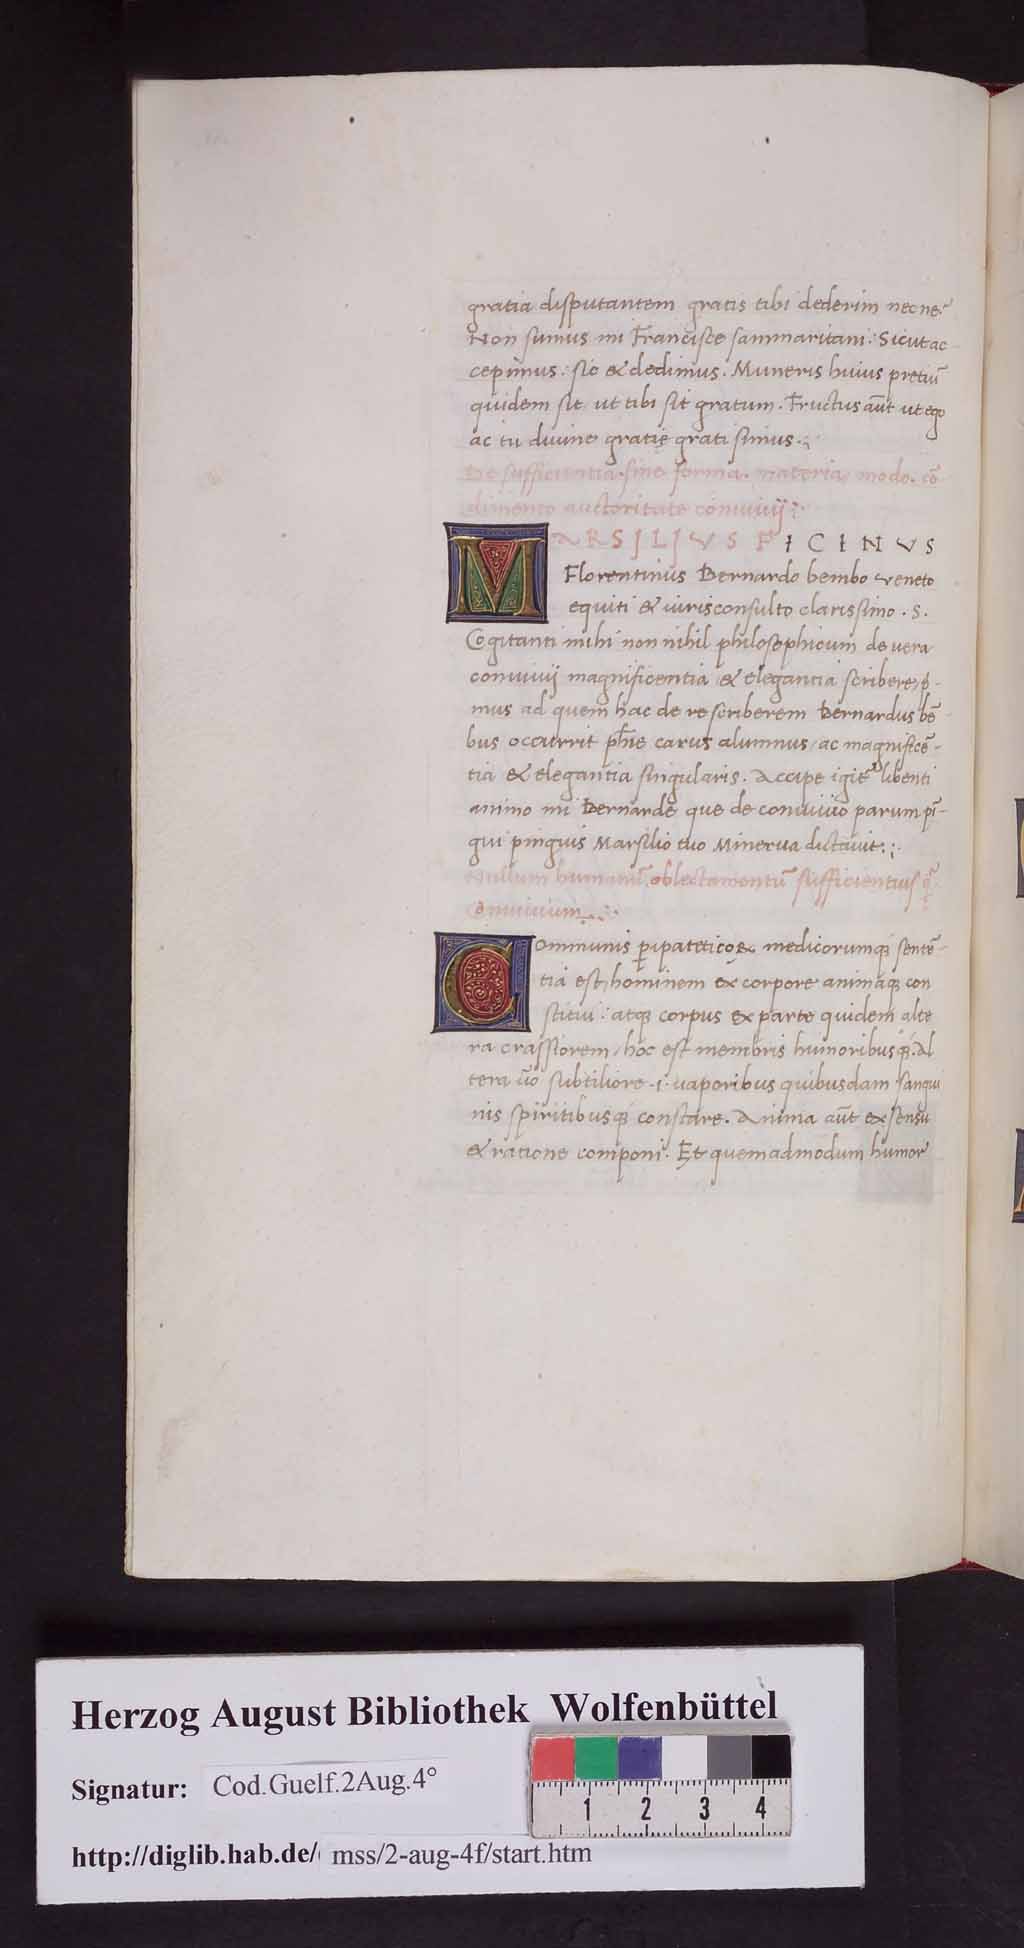 gratia disputantem gratis tibi dederim nec ne?
Non sumus mi Francisce sammaritani: Sicut ac
cepimus: sic & dedimus. Muneris huius pretiū
quidem sit, ut tibi sit gratum. Fructus aūt ut ego
ac tu divine gratie gratissimus.
De sufficientia. fine forma. materia, modo. cō
dimento auctoritate convivij:
MARSILIVS FICINVS
Florentinus Bernardo bembo veneto
equiti & iurisconsulto clarissimo. S.
Cogitanti mihi non nihil philosophicum de vera
convivij magnificentia & elegantia scribere, p̄-
mus ad quem hac de re scriberem Bernardus bē-
bus occurrit ph̄ie carus alumnus, ac magnificē-
tia & elegantia singularis. Accipe igit̄ libenti
animo mi Bernarde que de convivio parum pī-
gui pinguis Marsilio tuo Minerva dictavit:
Nullum humanū oblectamentū sufficientius q̄
Convivium
Communis peripateticoꝝ medicorumqꝫ sentē-
tia est, hominem ex corpore animaqꝫ con
stitui: atqꝫ corpus ex parte quidem alte
ra crassiorem, hoc est membris humoribusqꝫ. Al
tera ūo subtiliore .i. vaporibus quibusdam sangui
nis spiritibusqꝫ constare. Anima aūt ex sensu
& ratione componi. Et quemadmodum humor
Herzog August Bibliothek Wolfenbüttel
Signatur: Cod.Guelf.2Aug.4°
1 2 3 4
http://diglib.hab.de/ mss/2-aug-4f/start.htm